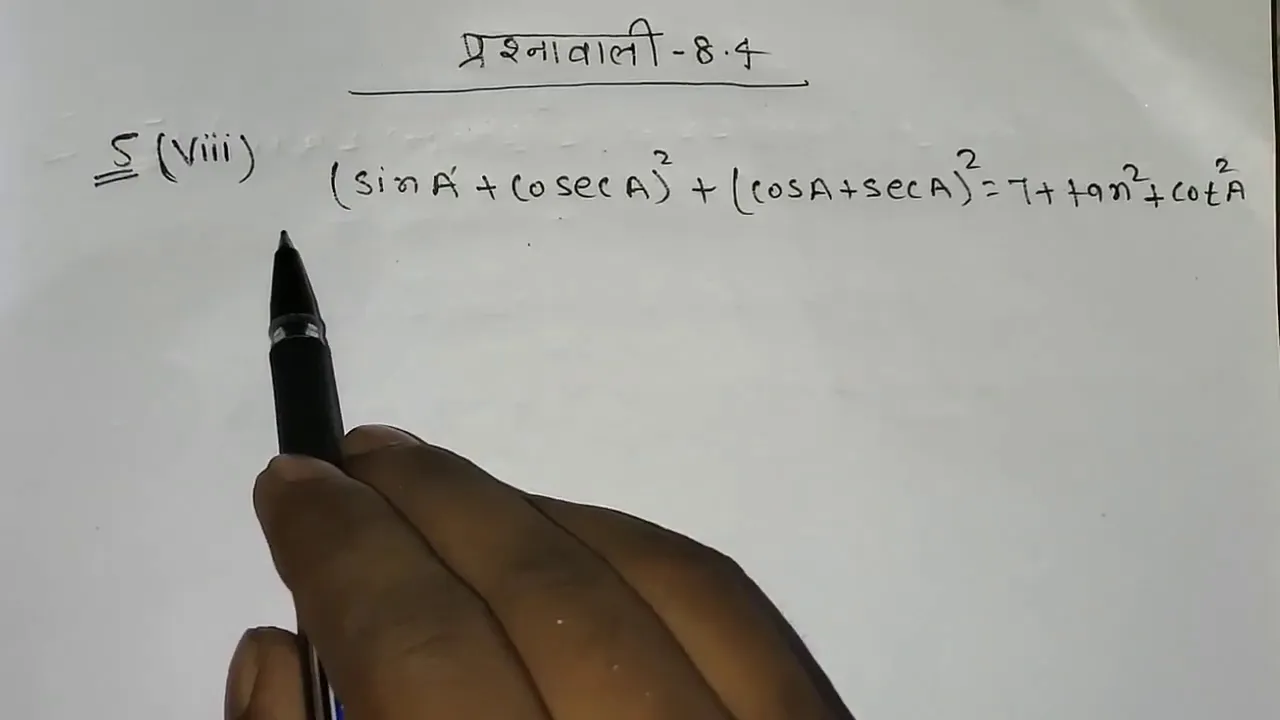 प्रश्नावाली - 8.4
5 (Viii) (sin A + cosec A)² + (cosA + sec A)² = 7 + tan² + cot²A